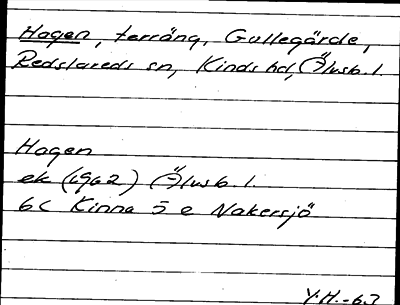 Hagen, terräng, Gullegärde,
Redslareds sn, Kinds hd, Älvsb. l.
Hagen
ek (1962) Älvsb. l.
6C Kinna 5 e Nakersjö
Y.H. -63